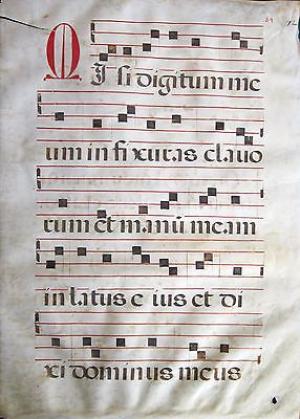 MIsi digitum me
um in fixuras clavo
rum et manū meam
in latus e ius et di
xi dominus meus